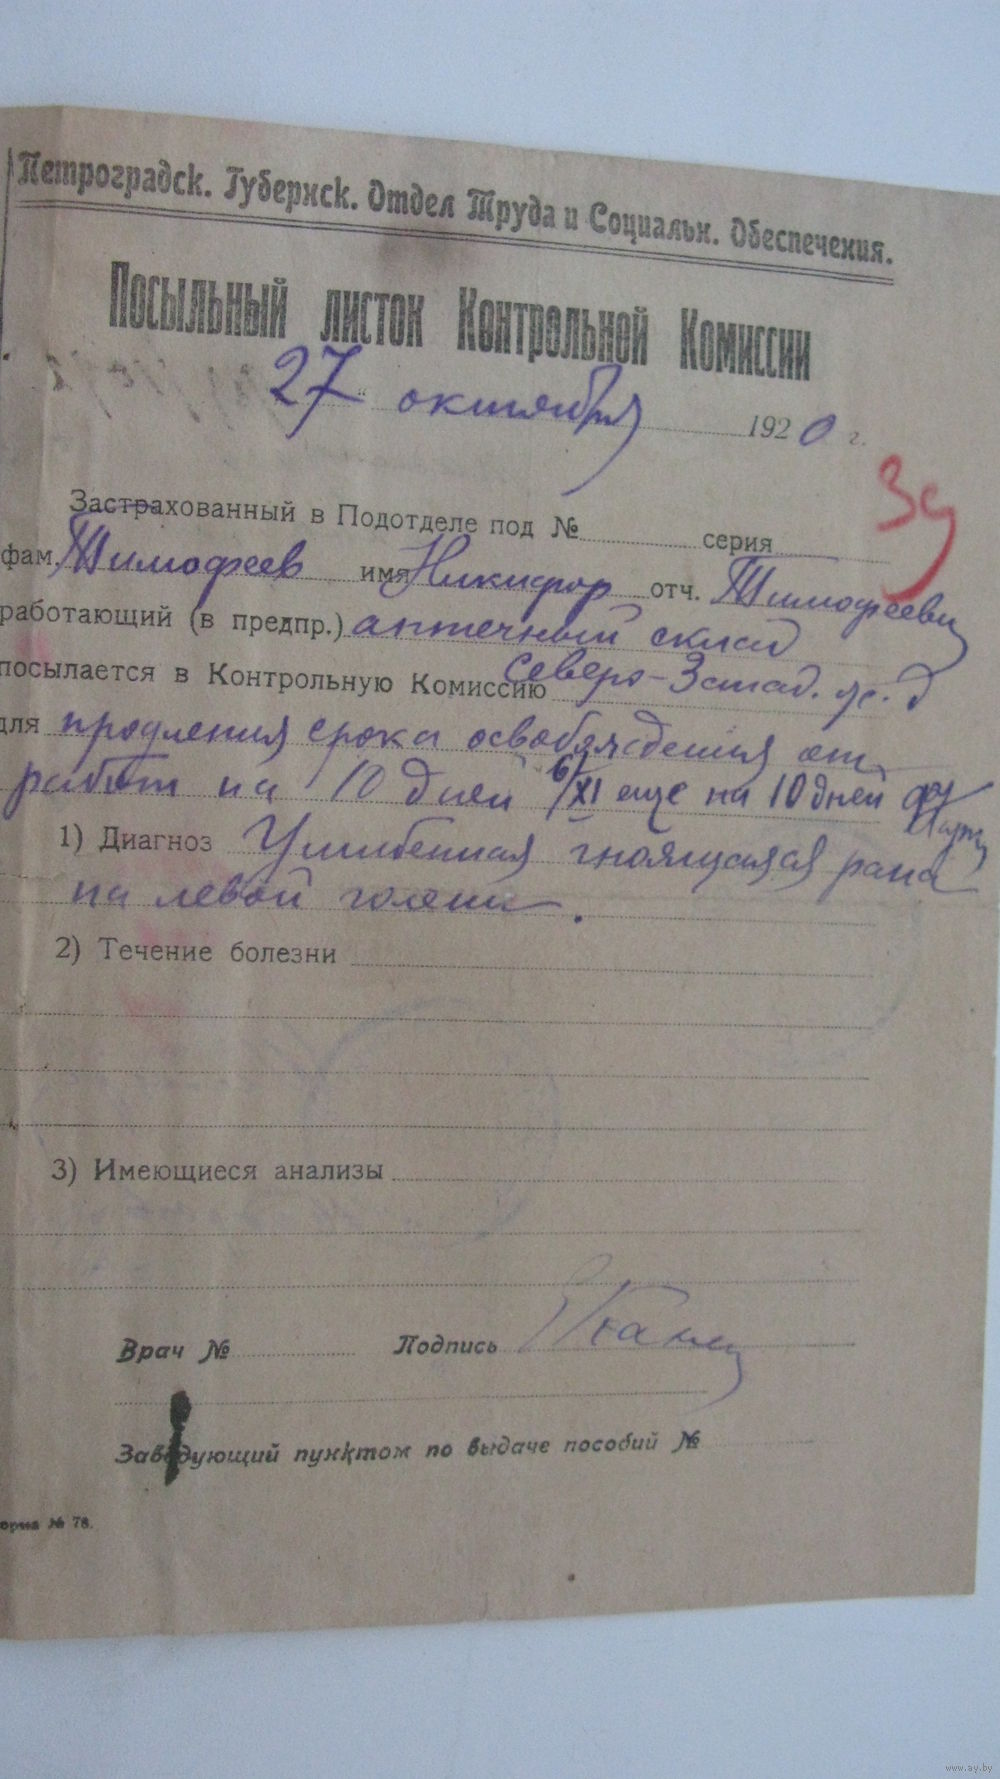 Петроградск. Губернск. Отдел Труда и Социальн. Обеспечения.
Посыльный листок Контрольной Комиссии
27 октября 1920 г.
Застрахованный в Подотделе под № серия
фам. Тимофеев имя Никифор отч. Тимофеевич
работающий (в предпр.) аптечный склад
Северо-Запад. ж. д
посылается в Контрольную Комиссию
для продления срока освобождения от
работ на 10 дней 6/XI еще на 10 дней
1) Диагноз Ушибенная гноящаяся рана
на левой голени.
2) Течение болезни
3) Имеющиеся анализы
Врач № Подпись
Заведующий пунктом по выдаче пособий №
орма № 78.
www.ay.by